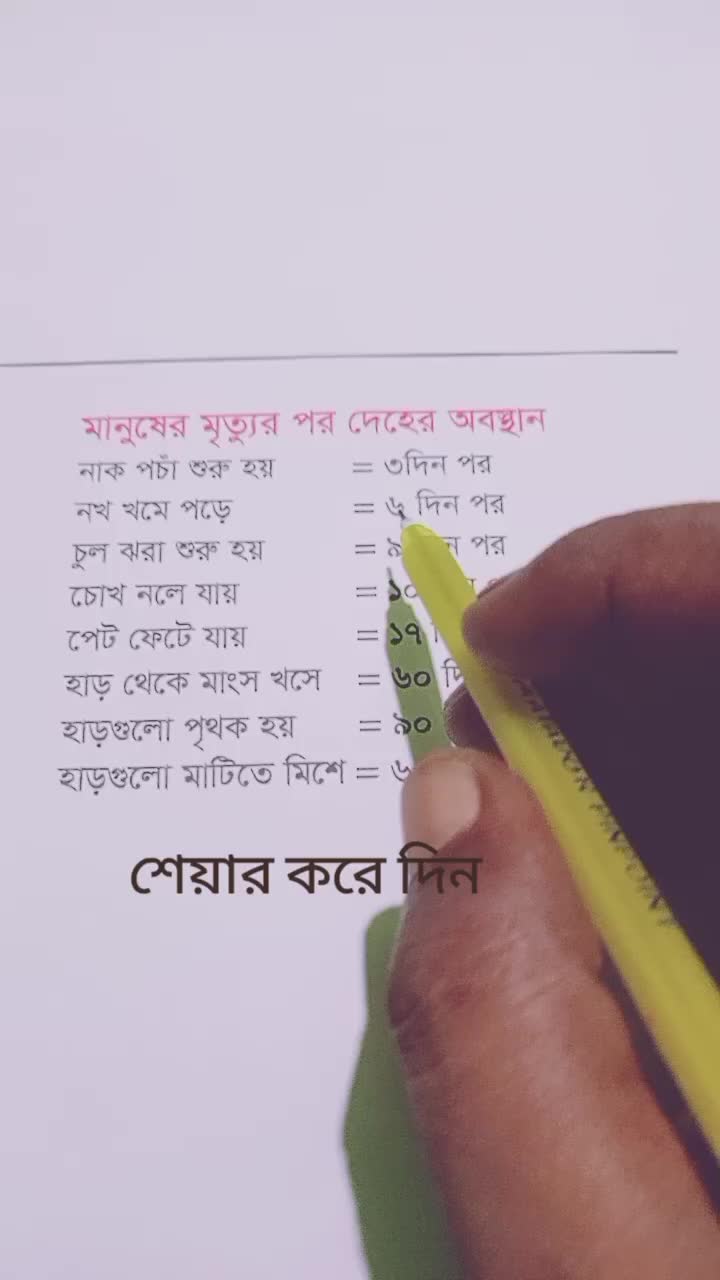 মানুষের মৃত্যুর পর দেহের অবস্থান
নাক পচাঁ শুরু হয় = ৩দিন পর
নখ খমে পড়ে = ৬ দিন পর
চুল ঝরা শুরু হয় = ৯ পর
চোখ নলে যায় = ১০
পেট ফেটে যায় = ১৭
হাড় থেকে মাংস খসে = ৬০
হাড়গুলো পৃথক হয় = ৯০
হাড়গুলো মাটিতে মিশে =
শেয়ার করে দিন